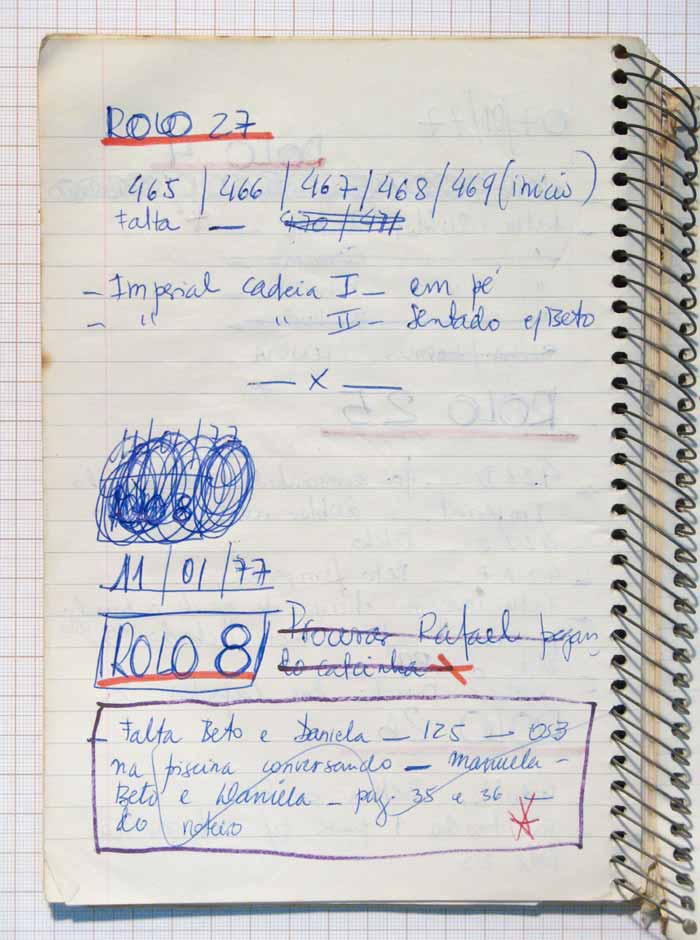 ROLO 27
465 / 466 / 467 / 468 / 469 (início)
Falta — 470 / 471
- Imperial cadeia I - em pé
- " " II - Sentado c/Beto
— x —
11/01/77
ROLO 8
11/01/77
ROLO 8
Procurar Rafael pegan
do calcinha
- Falta Beto e Daniela - 125 -
na piscina conversando - manuela -
Beto e Daniela - pag. 35 e 36 -
do roteiro